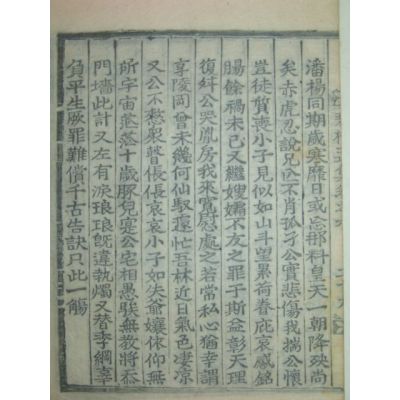 潘楊同期歲寒靡日或忘那料皇天一朝降殃尚
矣亦虎忍說兄亡不肖孤子公實悲傷我揣公懷
豈徒賀喪小子見似如山斗望累荷眷庇哀感銘
腸餘禍未已又繼嫂孀不友之罪于斯益彰天理
復舛公哭胤房我來寬慰處之若常私心猶幸謂
享陵岡曾未幾何仙馭遽忙吾林近日氣色凄凉
又公不憖衆瞽倀倀哀哀小子如失爺孃依仰無
所宇宙茫茫十歲豚兒寔公宅相愚騃無教將忝
門墻此計又左有淚琅琅旣違執燭又替季綱辜
負平生厥罪難償千古告訣只此一觴